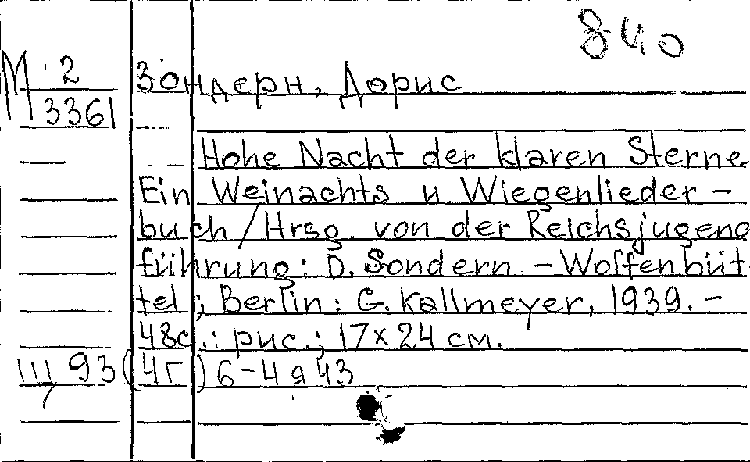 840
М 2 Зондерн, Дорис
3361
Hohe Nacht der klaren Sterne.
Ein Weinachts u. Wiegenlieder-
buch / Hrsg. von der Reichsjugend
führung: D. Sondern. - Wolfenbüt-
tel; Berlin: G. Kallmeyer, 1939. -
48с.: рис.; 17x24 см.
III 93 (4Г) 6-4 я 43